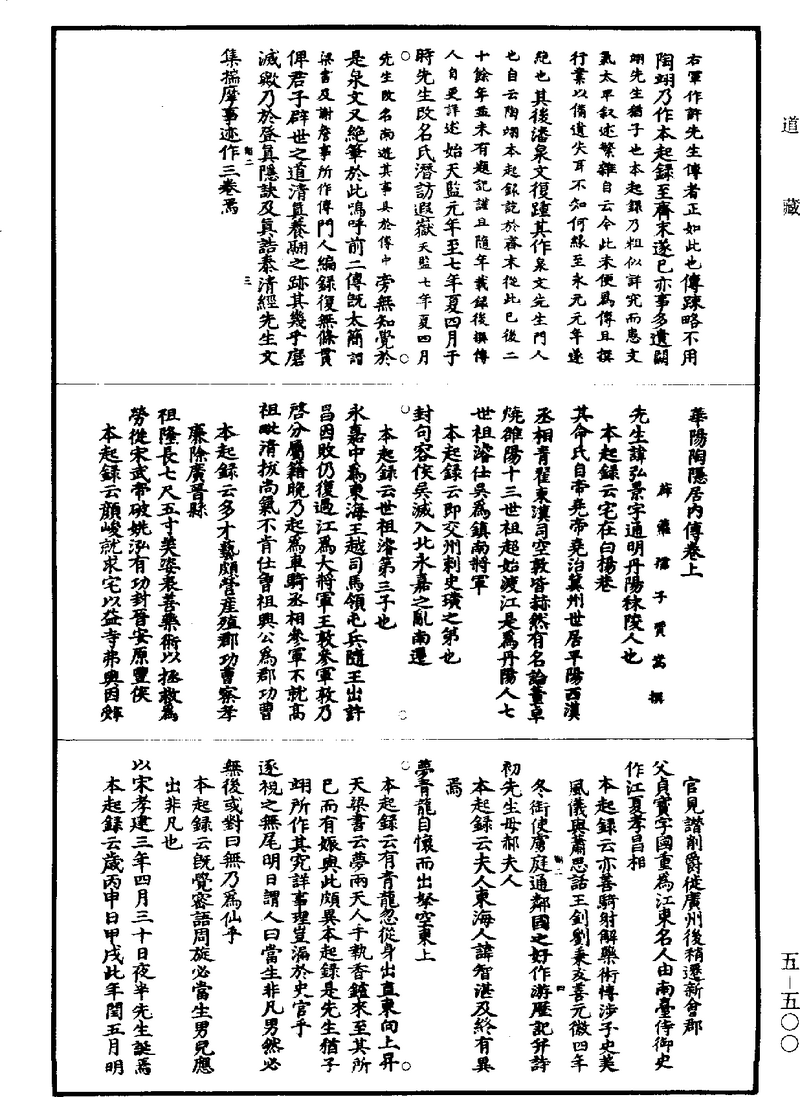 道藏
右軍作許先生傳者正如此也傳疎略不用
陶翊乃作本起錄至齊末遂已亦事多遺闕
翊先生猶子也本起錄乃粗似詳究而患文
氣太卑叙述繁雜自云今此未便爲傳且撰
行業以備遺失耳不知何緣至永元元年遂
絶也其後潘泉文復踵其作泉文先生門人
也自云陶翊本起錄訖於齊末從此已後二
十餘年並未有題記謹且隨年載錄後撰傳
人自更詳述始天監元年至七年夏四月于
時先生改名氏潛訪遐嶽天監七年夏四月
先生改名南遊其事具於傳中旁無知覺於
是泉文又絶筆於此嗚呼前二傳旣太簡謂
梁書及謝詹事所作傳門人編錄復無條貫
俾君子辟世之道清真養翮之跡其幾乎磨
滅歟乃於登真隱訣及真誥泰清經先生文
集揣摩事迹作三卷焉
三
華陽陶隱居内傳卷上
薜蘿孺子賈嵩撰
先生諱弘景字通明丹陽秣陵人也
本起錄云宅在白楊巷
其命氏自帝堯帝堯治冀州世居平陽西漢
丞相青翟東漢司空敦皆赫然有名論董卓
燒雒陽十三世祖超始渡江是爲丹陽人七
世祖濬仕吳爲鎮南將軍
本起錄云即交州刺史璜之弟也
封句容侯吳滅入北永嘉之亂南還
本起錄云世祖濬第三子也
永嘉中爲東海王越司馬領屯兵隨王出許
昌因敗仍復過江爲大將軍王敦參軍敦乃
啓分屬籍晚乃起爲車騎丞相參軍不就高
祖毗清拔尚氣不肯仕曾祖興公爲郡功曹
本起錄云多才藝頗營産殖郡功曹察孝
廉除廣晉縣
祖隆長七尺五寸美姿表善藥術以拯救爲
勞從宋武帝破姚泓有功封晉安原豐侯
本起錄云顏峻就求宅以益寺弗與因辤
官見譖削爵徙廣州後稍遷新會郡
父貞寶字國重爲江東名人由南臺侍御史
作江夏孝昌相
本起錄云亦善騎射解藥術博涉子史美
風儀與蕭思話王釗劉秉友善元徽四年
冬銜使虜庭通鄰國之好作游歷記并詩
四
初先生母郝夫人
本起錄云夫人東海人諱智湛及終有異
焉
夢青龍自懷而出拏空東上
本起錄云有青龍忽從身出直東向上昇
天梁書云夢兩天人手執香鑪來至其所
已而有娠與此頗異本起錄是先生猶子
翊所作其究詳事理豈漏於史官乎
逐視之無尾明日謂人曰當生非凡男然必
無後或對曰無乃爲仙乎
本起錄云旣覺密語周旋必當生男兒應
出非凡也
以宋孝建三年四月三十日夜半先生誕焉
本起錄云歲丙申日甲戌此年閏五月明
五－五〇〇